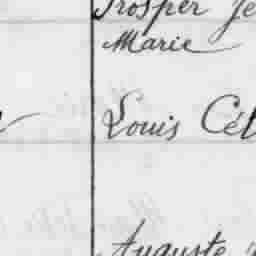 Prosper Je
Marie
Louis Cél
Auguste